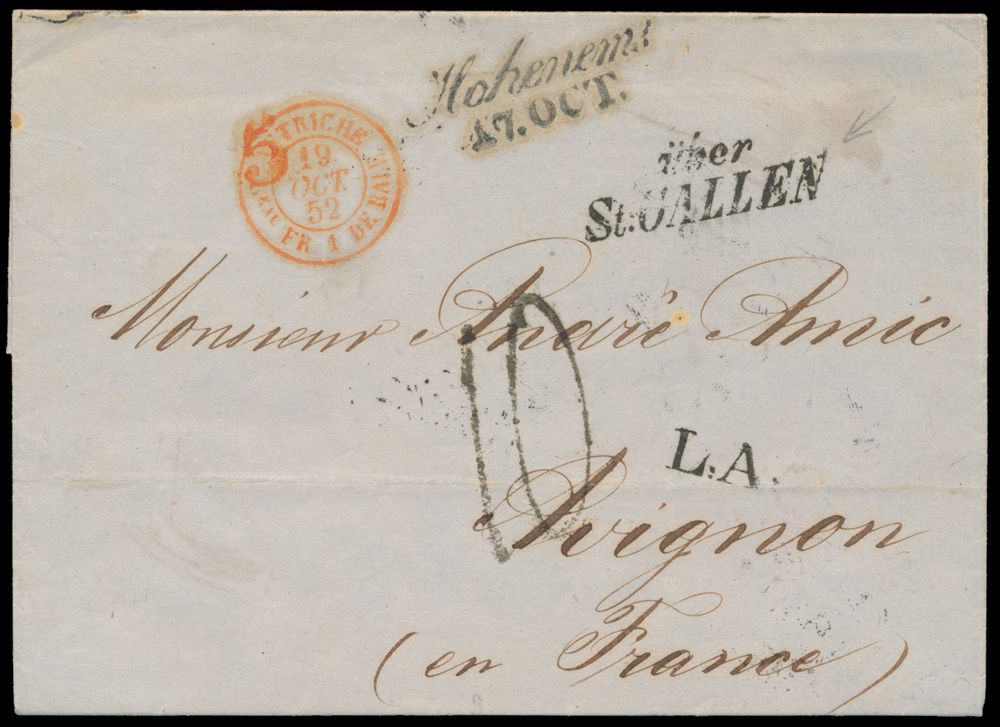 Hohenems
17. OCT.
über
St. GALLEN
5
TRICHE
19
OCT
52
FR 1 DE BAVIE
Monsieur André Amic
10
L.A.
Avignon
(en France)